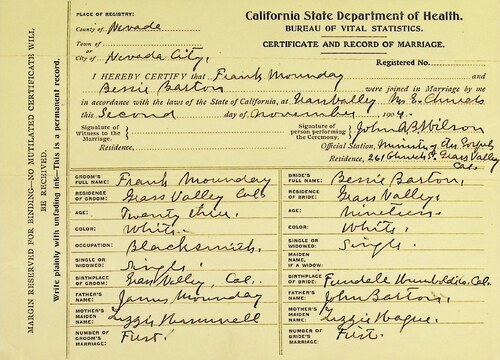 California State Department of Health.
PLACE OF REGISTRY:
BUREAU OF VITAL STATISTICS.
County of Nevada
CERTIFICATE AND RECORD OF MARRIAGE.
Town of
or
City of Nevada City.
Registered No.
I HEREBY CERTIFY that Frank Mounday
and Bessie Barton were joined in Marriage by me
in accordance with the laws of the State of California, at Grass Valley M. E. Church
this Second day of November 1904.
Signature of Witness to the Marriage.
Signature of person performing the Ceremony. John B Wilson
Official Station, Minister of the Gospel
Residence,
Residence, 261 Church St. Grass Valley Cal.
GROOM'S FULL NAME: Frank Mounday
BRIDE'S FULL NAME: Bessie Barton.
RESIDENCE OF GROOM: Grass Valley Cal
RESIDENCE OF BRIDE: Grass Valley.
AGE: Twenty
AGE: nineteen
COLOR: White.
COLOR: White.
OCCUPATION: Blacksmith.
SINGLE OR WIDOWED: Single.
SINGLE OR WIDOWED: Single.
MAIDEN NAME, IF A WIDOW:
BIRTHPLACE OF GROOM: Grass Valley, Cal.
BIRTHPLACE OF BRIDE: Humboldt Co. Cal.
FATHER'S NAME: James Mounday
FATHER'S NAME: John Barton.
MOTHER'S MAIDEN NAME: Lizzie Hammell
MOTHER'S MAIDEN NAME: Lizzie Hague.
NUMBER OF GROOM'S MARRIAGE: First.
NUMBER OF BRIDE'S MARRIAGE: First.
MARGIN RESERVED FOR BINDING—NO MUTILATED CERTIFICATE WILL
BE RECEIVED.
Write plainly with unfading ink—This is a permanent record.